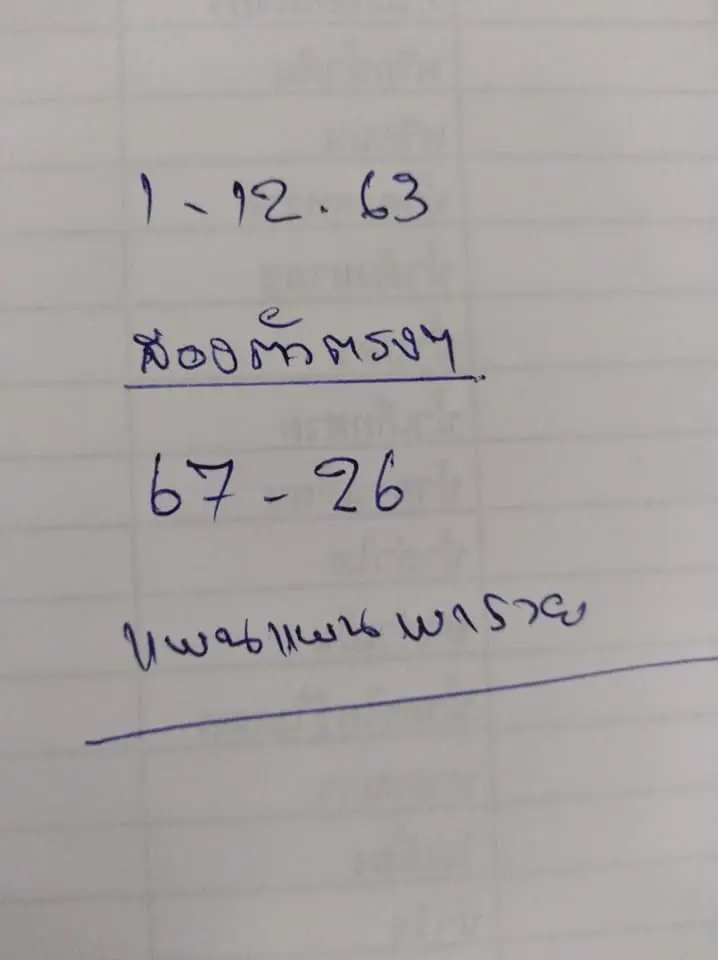 1-12.63
สองตัวตรงๆ
67-26
แพนแพนพารวย